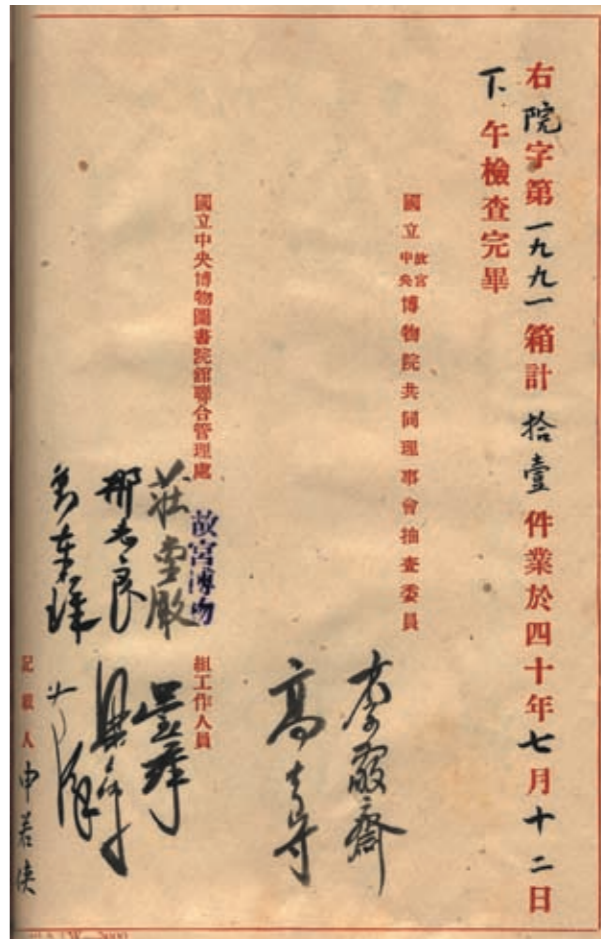 右院字第一九九一箱計拾壹件業於四十年七月十二日
下午檢查完畢
國立故宮中央博物院共同理事會抽查委員
李霖齋
高去尋
國立中央博物圖書院館聯合管理處故宮博物組工作人員
莊尚嚴
那志良
吳玉璋
梁廷煒
黃居祥
記錄人申若俠